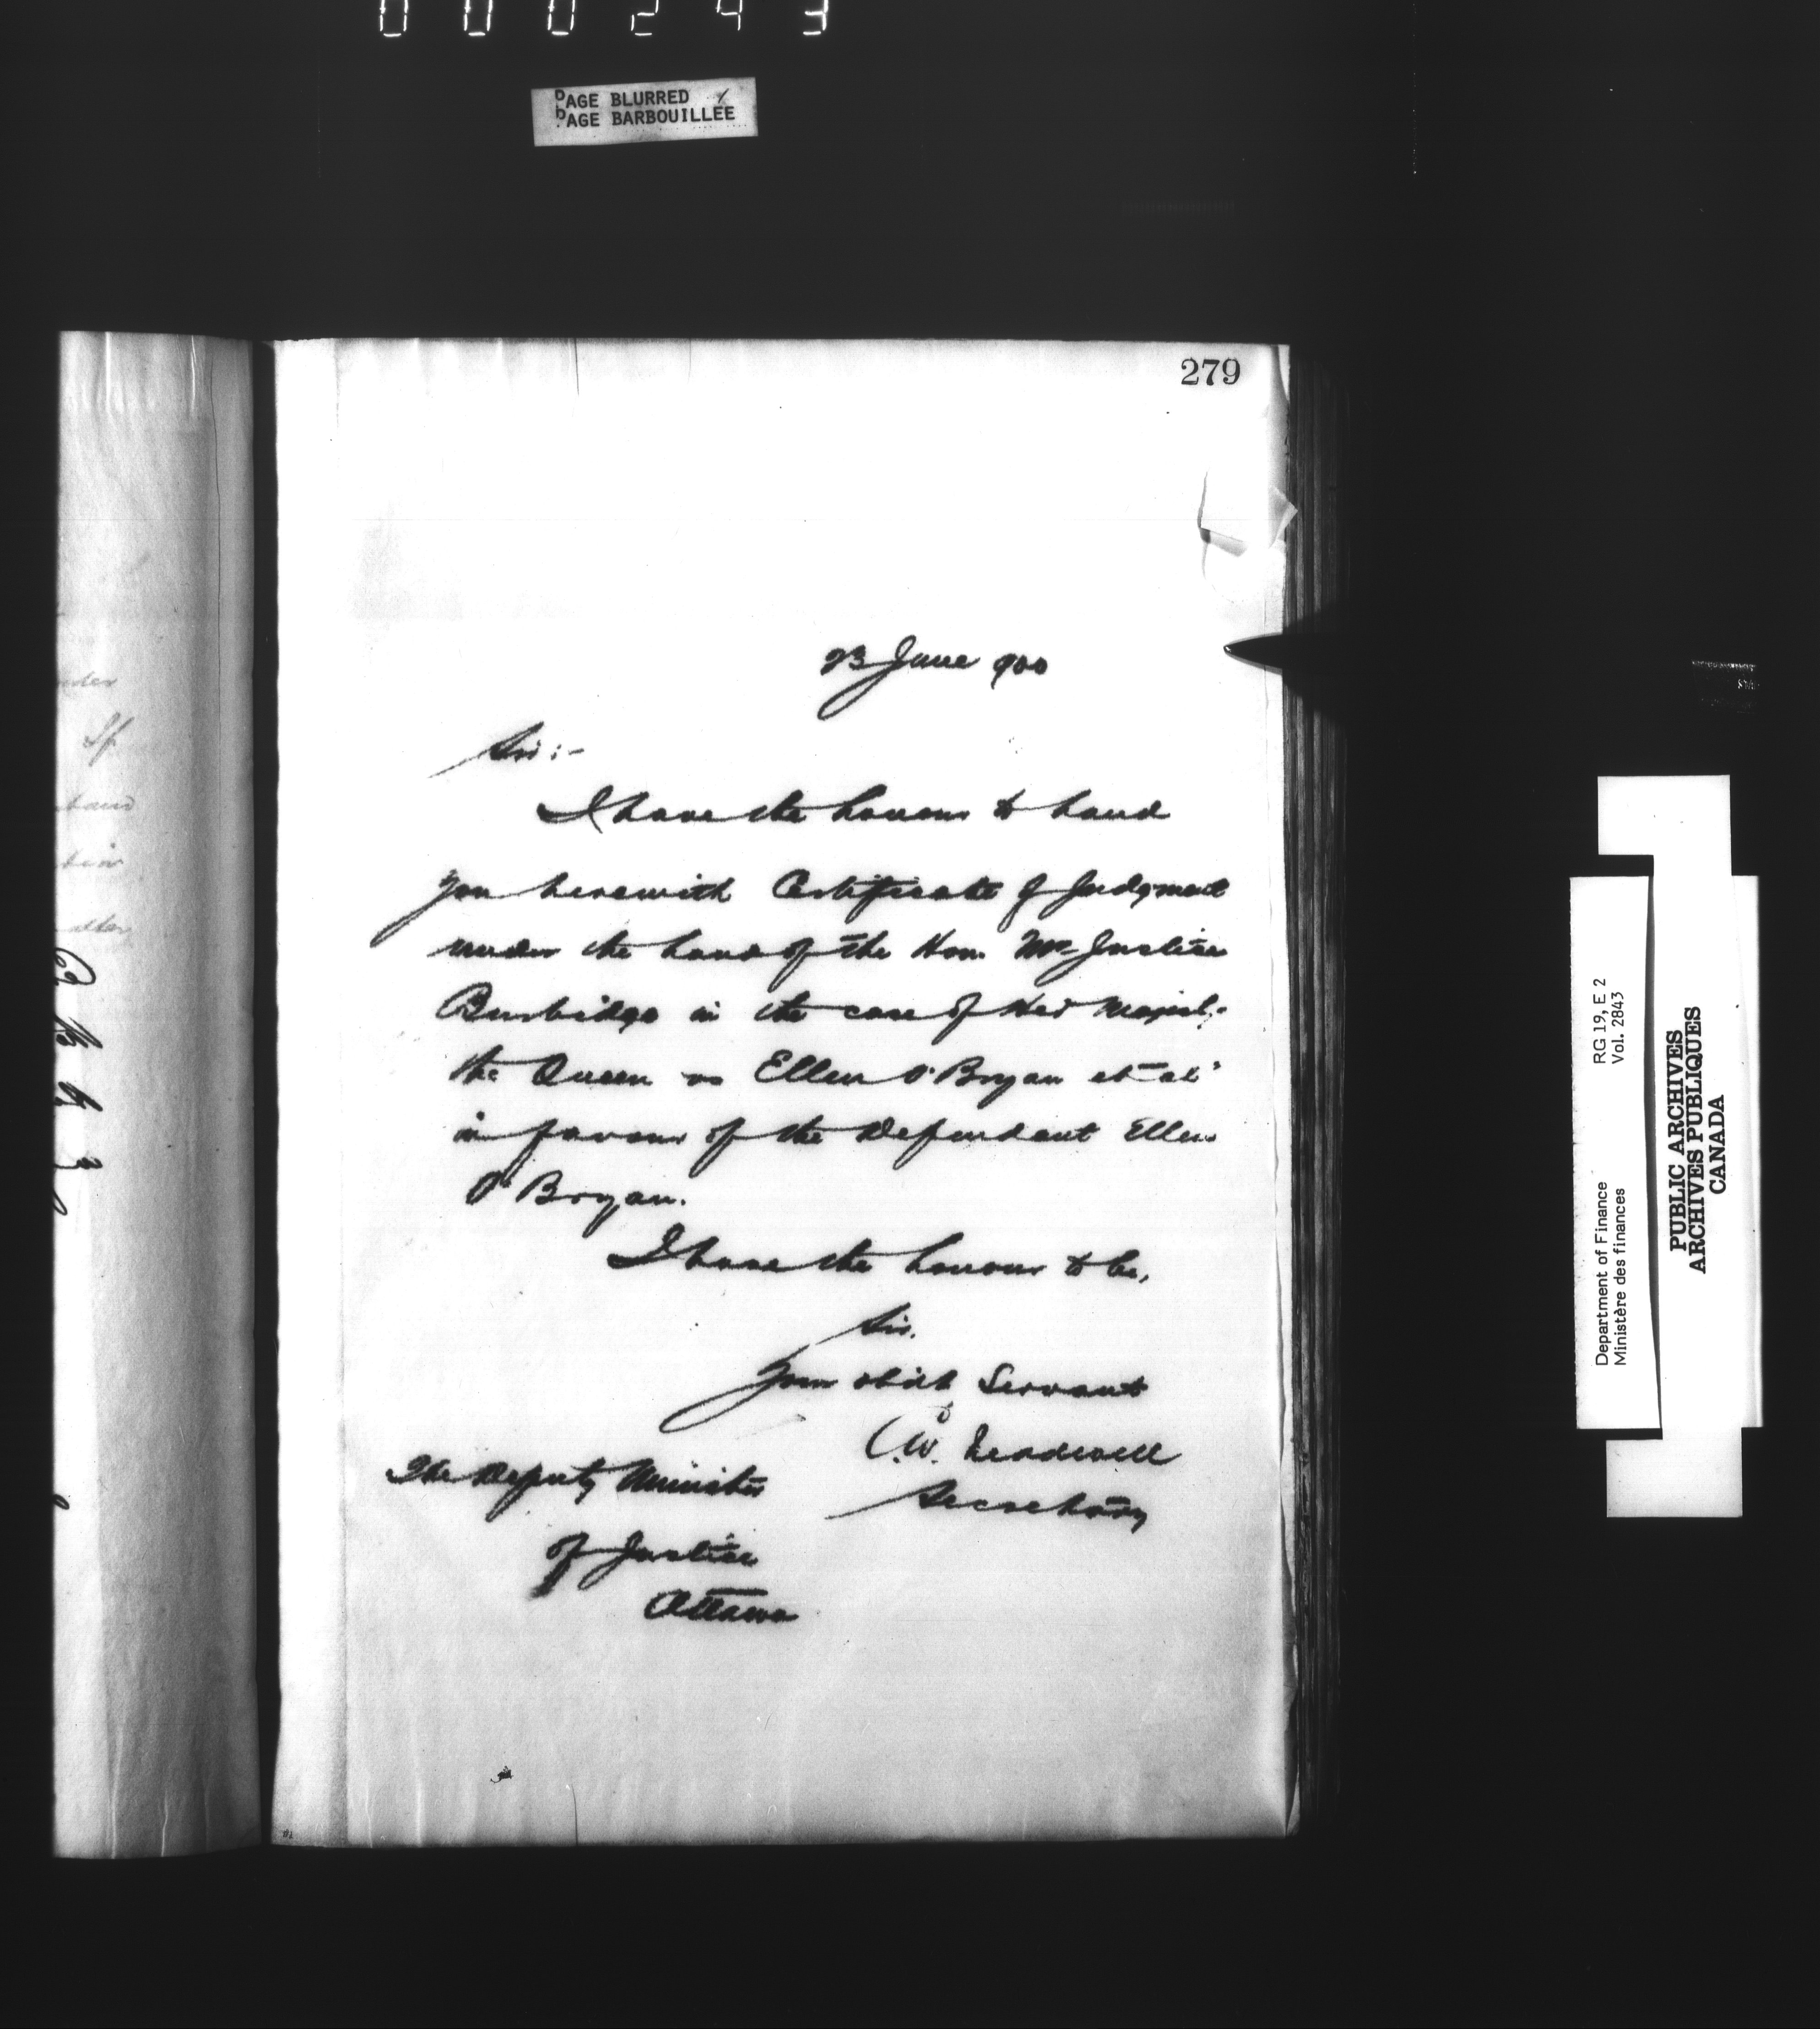 000243
PAGE BLURRED
PAGE BARBOUILLÉE
279
23 June 900
Sir:-
I have the honour to hand
you herewith Certificate of Judgment
under the hand of the Hon. Mr Justice
Burbidge in the case of Her Majesty
the Queen vs Ellen O'Bryan et al
in favour of the Defendant Ellen
O'Bryan.
I have the honour to be,
Sir.
Your obdt Servant
C.W. Treadwell
Secretary
The Deputy Minister
of Justice
Ottawa
Department of Finance
Ministère des finances
RG 19, E 2
Vol. 2843
PUBLIC ARCHIVES
ARCHIVES PUBLIQUES
CANADA